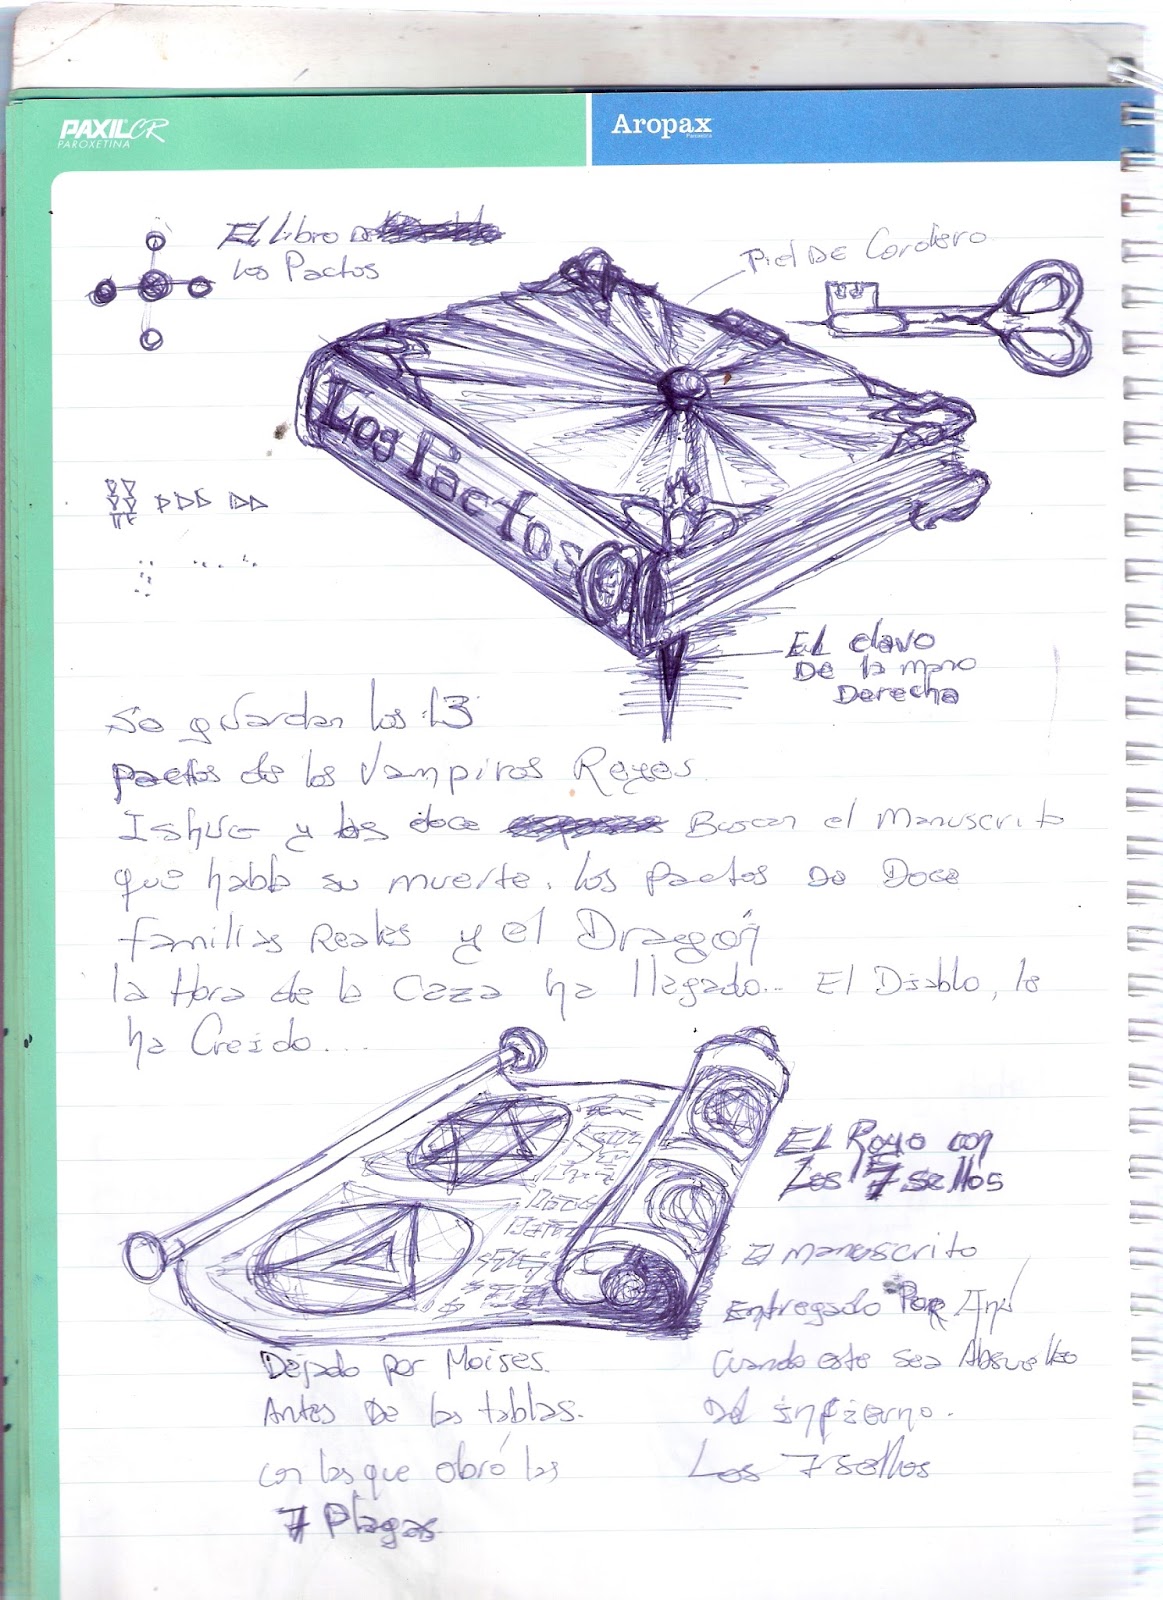 PAXIL CR
PAROXETINA
Aropax
Paroxetina
El Libro De
los Pactos
Piel De Cordero
Los Pactos
El clavo
De la mano
Derecha
Se guardan los 13
pactos de los Vampiros Reyes.
y los doce Buscan el Manuscrito
que habla su muerte. los pactos de Doce
familias Reales y el Dragón
la Hora de la Caza ha llegado... El Diablo, le
ha Creido...
El Royo con
Los 7 sellos
El manuscrito
Entregado Por
Cuando este sea Absuelto
Del infierno.
Los 7 sellos
Dejado por Moises.
Antes De las tablas.
con las que obró las
7 Plagas